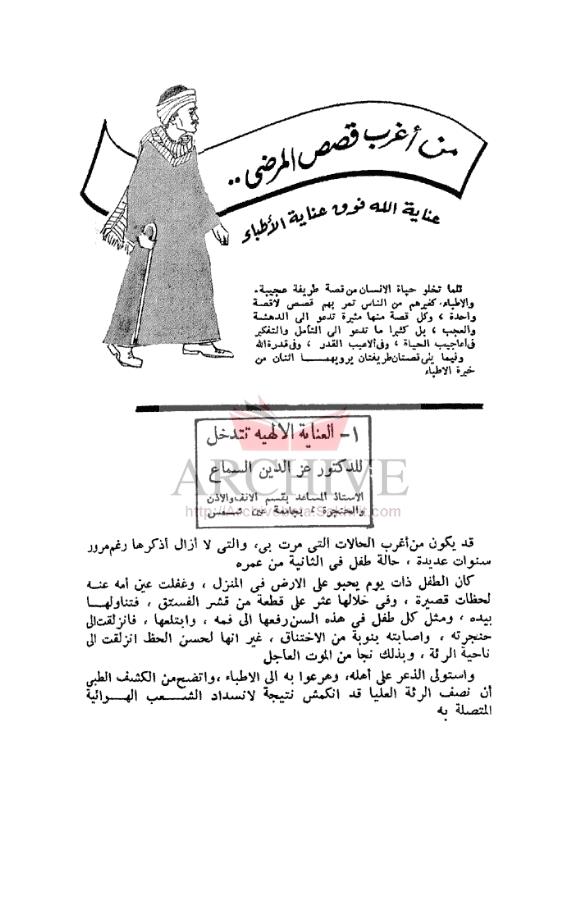 من أغرب قصص المرضى ..
عناية الله فوق عناية الأطباء
قلما تخلو حياة الانسان من قصة طريفة عجيبة.
والاطباء كغيرهم من الناس تمر بهم قصص لاقصة
واحدة ، وكل قصة منها مثيرة تدعو الى الدهشة
والعجب ، بل كثيرا ما تدعو الى التأمل والتفكير
فى أعاجيب الحياة ، وفى ألاعيب القدر ، وفى قدرة الله
وفيما يلى قصتان طريفتان يرويهما اثنان من
خيرة الاطباء
١- العناية الالهيه تتدخل
للدكتور عز الدين السماع
الاستاذ المساعد بقسم الانف والاذن
والحنجرة ، بجامعة عين شمس
ARCHIVE
قد يكون من أغرب الحالات التى مرت بى، والتى لا أزال أذكرها رغم مرور
سنوات عديدة ، حالة طفل فى الثانية من عمره
كان الطفل ذات يوم يحبو على الارض فى المنزل ، وغفلت عين أمه عنه
لحظات قصيرة ، وفى خلالها عثر على قطعة من قشر الفستق ، فتناولها
بيده ، ومثل كل طفل فى هذه السن رفعها الى فمه ، وابتلعها ، فانزلقت الى
حنجرته ، واصابته بنوبة من الاختناق ، غير انها لحسن الحظ انزلقت الى
ناحية الرئة ، وبذلك نجا من الموت العاجل
واستولى الذعر على أهله، وهرعوا به الى الاطباء ،واتضح من الكشف الطبى
أن نصف الرئة العليا قد انكمش نتيجة لانسداد الشعب الهوائية
المتصلة به